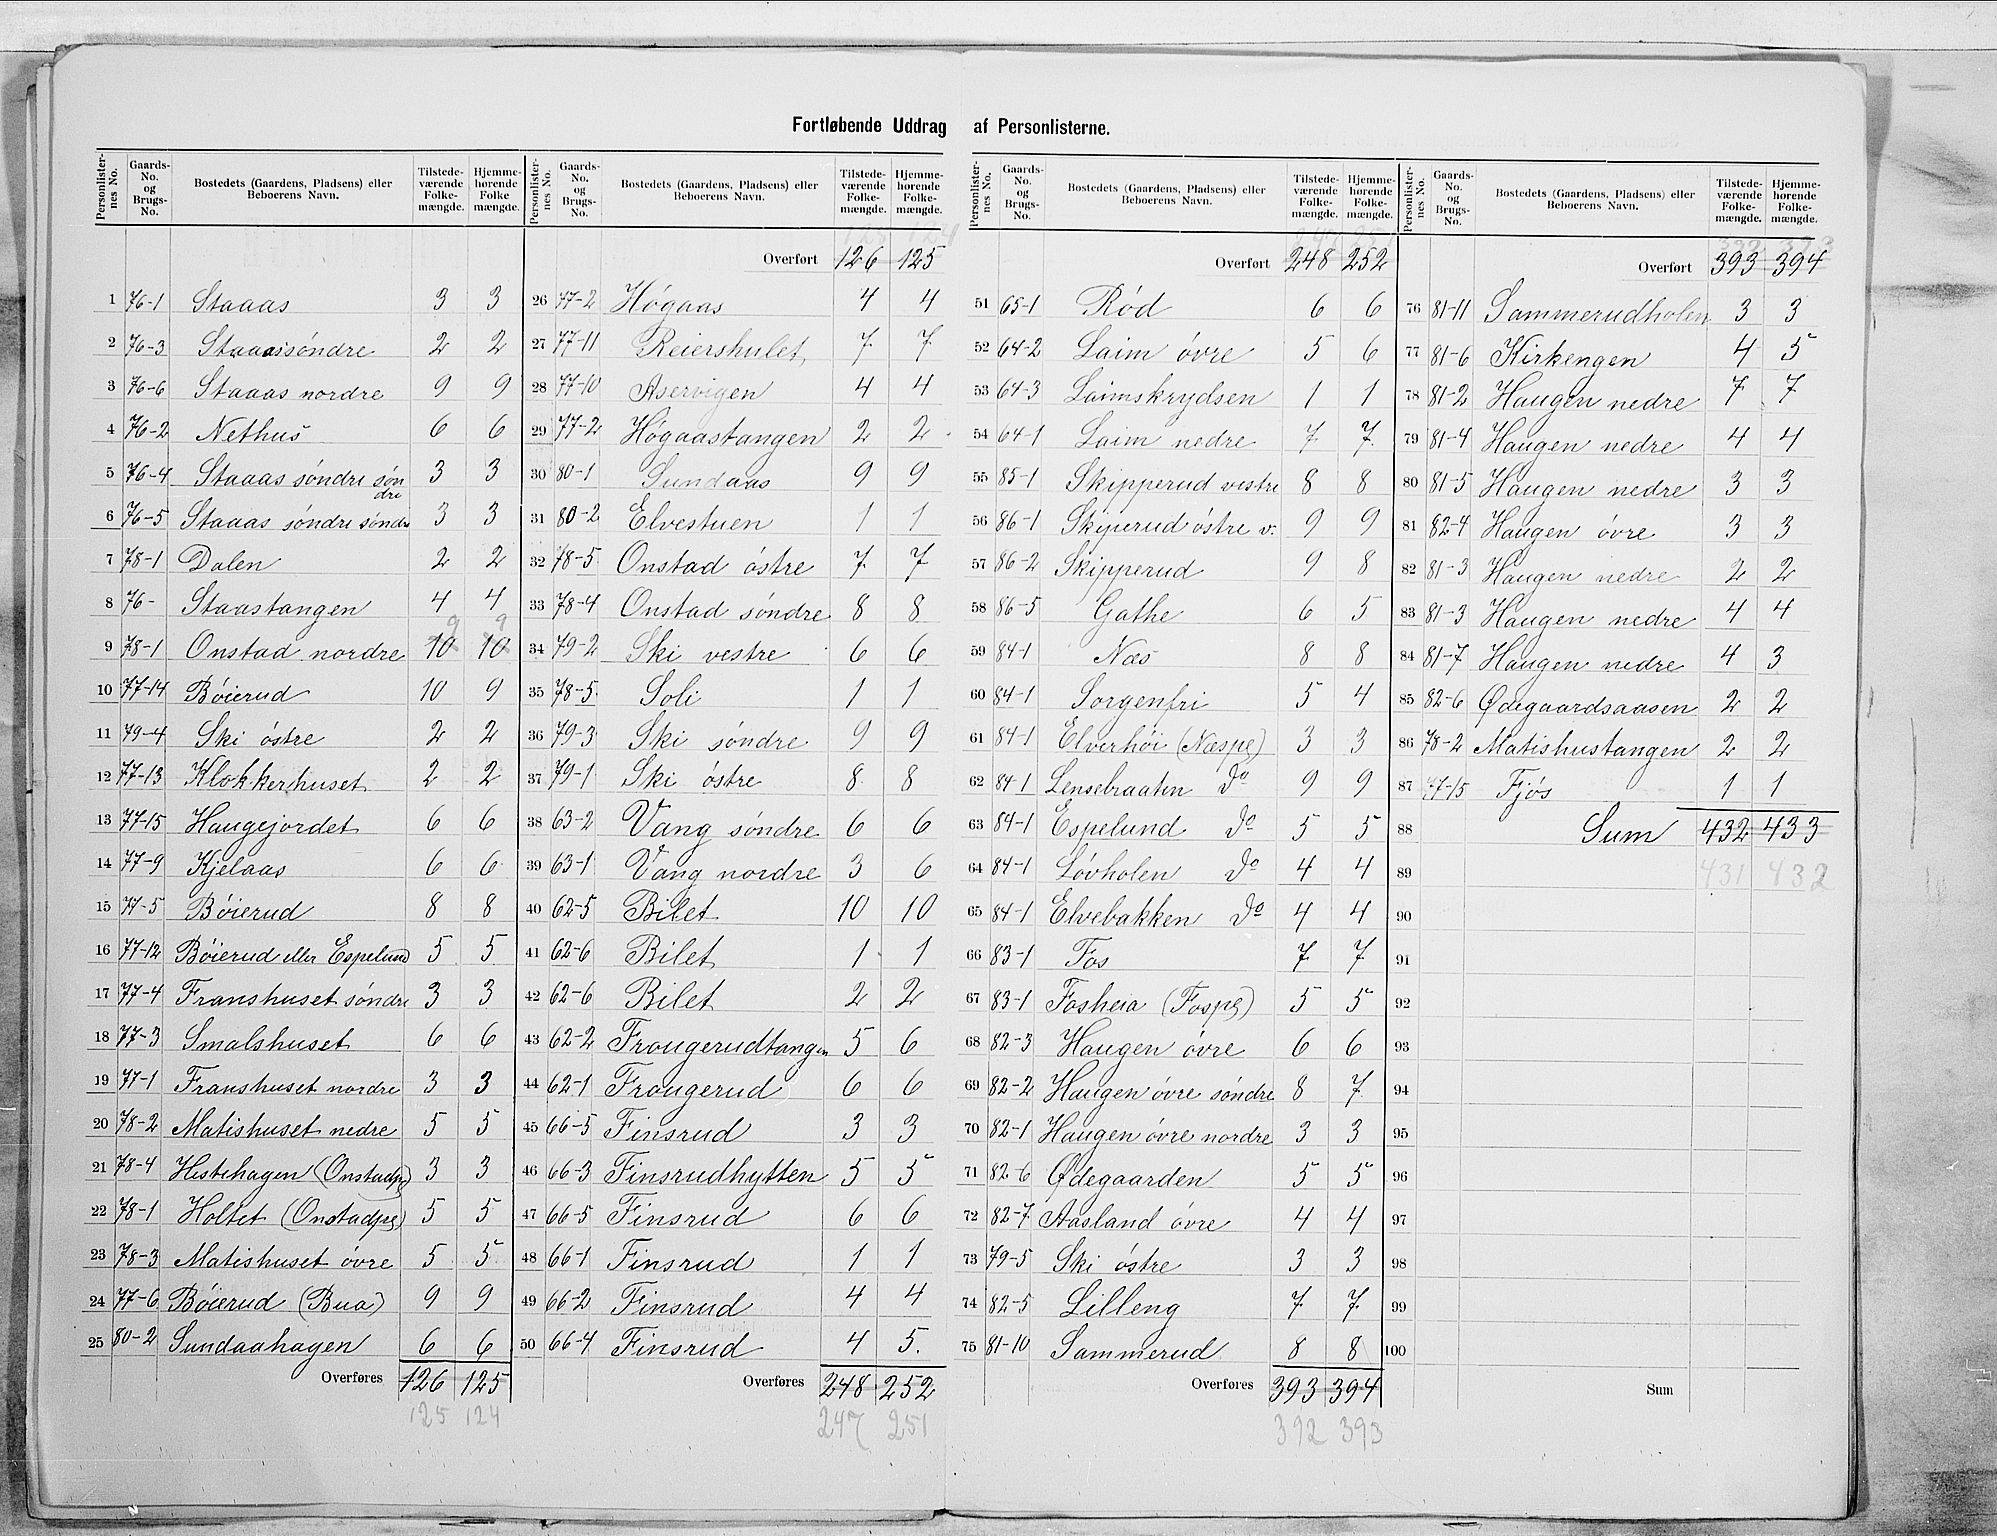 Fortløbende Uddrag af Personlisterne.
Personlister-nes No. | Gaards-No. og Brugs-No. | Bostedets (Gaardens, Pladsens) eller Beboerens Navn. | Tilstede-værende Folke-mængde. | Hjemme-hørende Folke mængde.
1 76-1 Staaas 3 3
2 76-3 Staaassöndre 2 2
3 76-6 Staaas nordre 9 9
4 76-2 Nethus 6 6
5 76-4 Staaas söndre söndre 3 3
6 76-5 Staaas söndre söndre 3 3
7 78-1 Dalen 2 2
8 76- Staastangen 4 4
9 9
9 78-1 Onstad nordre 10 10
10 77-14 Böierud 10 9
11 79-4 Ski östre 2 2
12 77-13 Klokkerhuset 2 2
13 77-15 Haugejordet 6 6
14 77-9 Kjelaas 6 6
15 77-5 Böierud 8 8
16 77-12 Böierud eller Espelund 5 5
17 77-4 Franshuset söndre 3 3
18 77-3 Smalshuset 6 6
19 77-1 Franshuset nordre 3 3
20 78-2 Matishuset nedre 5 5
21 78-4 Hestehagen (Onstadpl) 3 3
22 78-1 Holtet (Onstadpl) 5 5
23 78-3 Matishuset övre 5 5
24 77-6 Böierud (Bua) 9 9
25 80-2 Sundaahagen 6 6
Overføres 126 125
125 124
Personlister-nes No. | Gaards-No. og Brugs-No. | Bostedets (Gaardens, Pladsens) eller Beboerens Navn. | Tilstede-værende Folke-mængde. | Hjemme-hørende Folke-mængde.
Overført 126 125
26 77-2 Högaas 4 4
27 77-11 Reiershulet 7 7
28 77-10 Aservigen 4 4
29 77-2 Högaastangen 2 2
30 80-1 Sundaas 9 9
31 80-2 Elvestuen 1 1
32 78-5 Onstad östre 7 7
33 78-4 Onstad söndre 8 8
34 79-2 Ski vestre 6 6
35 78-5 Soli 1 1
36 79-3 Ski söndre 9 9
37 79-1 Ski östre 8 8
38 63-2 Vang söndre 6 6
39 63-1 Vang nordre 3 6
40 62-5 Bilet 10 10
41 62-6 Bilet 1 1
42 62-6 Bilet 2 2
43 62-2 Frougerudtangen 5 6
44 62-1 Frougerud 6 6
45 66-5 Finsrud 3 3
46 66-3 Finsrudhytten 5 5
47 66-5 Finsrud 6 6
48 66-1 Finsrud 1 1
49 66-2 Finsrud 4 4
50 66-4 Finsrud 4 5.
Overføres 248 252
247 251
Personlister-nes No. | Gaards-No. og Brugs-No. | Bostedets (Gaardens, Pladsens) eller Beboerens Navn. | Tilstede-værende Folke-mængde. | Hjemme-hørende Folke-mængde.
247 251
Overført 248 252
51 65-1 Röd 6 6
52 64-2 Laim övre 5 6
53 64-3 Laimskrydsen 1 1
54 64-1 Laim nedre 7 7
55 85-1 Skipperud vestre 8 8
56 86-1 Skiperud östre v. 9 9
57 86-2 Skipperud 9 8
58 86-5 Gathe 6 5
59 84-1 Næs 8 8
60 84-1 Sorgenfri 5 4
61 84-1 Elverhöi (Næspl) 3 3
62 84-1 Lensebraaten do 9 9
63 84-1 Espelund do 5 5
64 84-1 Lövholen do 4 4
65 84-1 Elvebakken do 4 4
66 83-1 Fos 7 7
67 83-1 Fosheia (Fospl) 5 5
68 82-3 Haugen övre 6 6
69 82-2 Haugen övre söndre 8 7
70 82-1 Haugen övre nordre 3 3
71 82-6 Ødegaarden 5 5
72 82-7 Aasland övre 4 4
73 79-5 Ski östre 3 3
74 82-5 Lilleng 7 7
75 81-10 Sammerud 8 8
Overføres 393 394
392 393
Personlister-nes No. | Gaards-No. og Brugs-No. | Bostedets (Gaardens, Pladsens) eller Beboerens Navn. | Tilstede-værende Folke-mængde. | Hjemme-hørende Folke-mængde.
392 393
Overført 393 394
76 81-11 Sammerudholen 3 3
77 81-6 Kirkengen 4 5
78 81-2 Haugen nedre 7 7
79 81-4 Haugen nedre 4 4
80 81-5 Haugen nedre 3 3
81 82-4 Haugen övre 3 3
82 81-3 Haugen nedre 2 2
83 81-3 Haugen nedre 4 4
84 81-7 Haugen nedre 4 3
85 82-6 Ødegaardsaasen 2 2
86 78-2 Matishustangen 2 2
87 77-15 Fjös 1 1
88 Sum 432 433
89 431 432
90
91
92
93
94
95
96
97
98
99
100
Sum